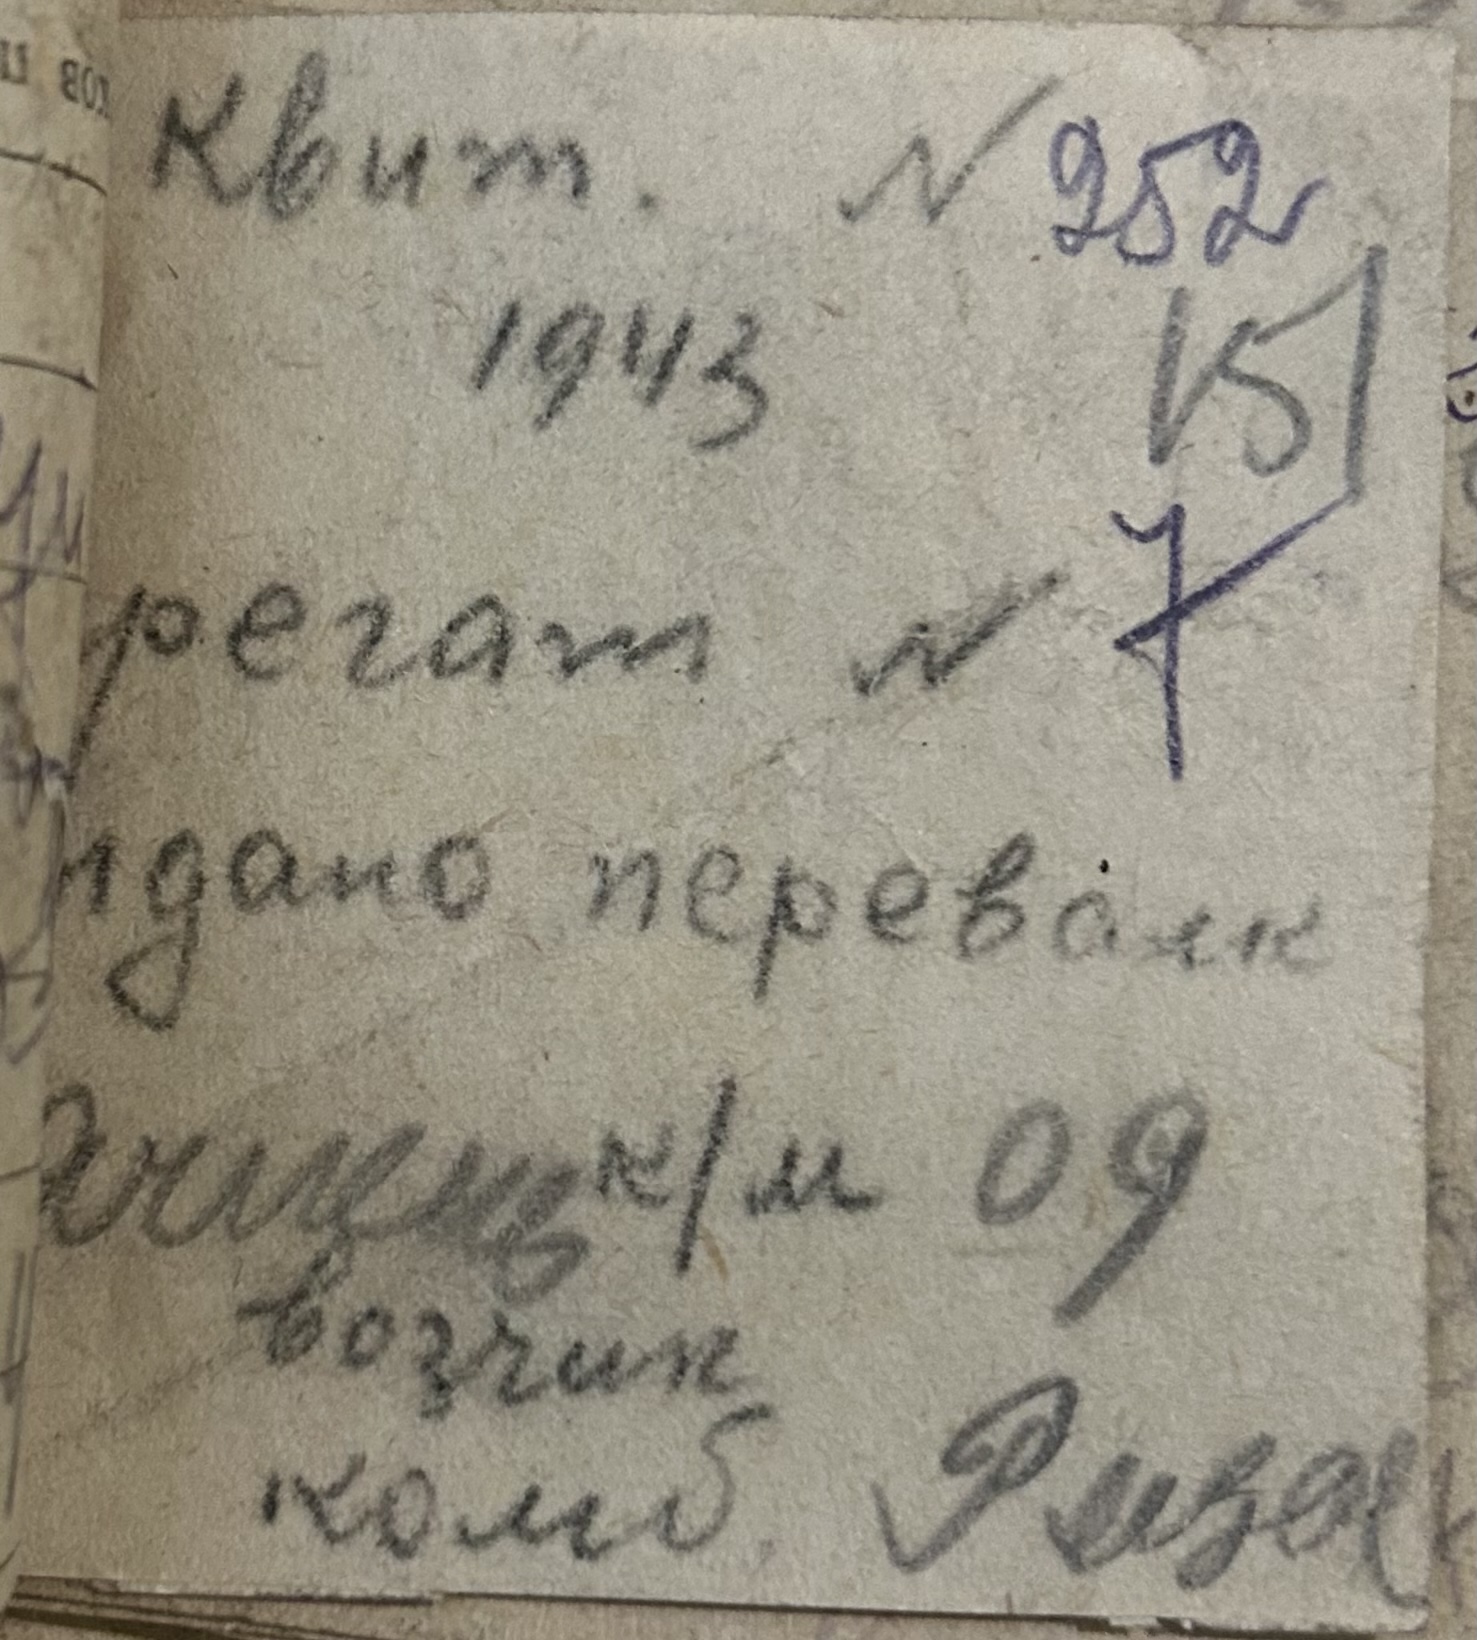 Квит. № 252
1943 151
регат № 7
дано перевалк
к/м 09
возчик
комб.